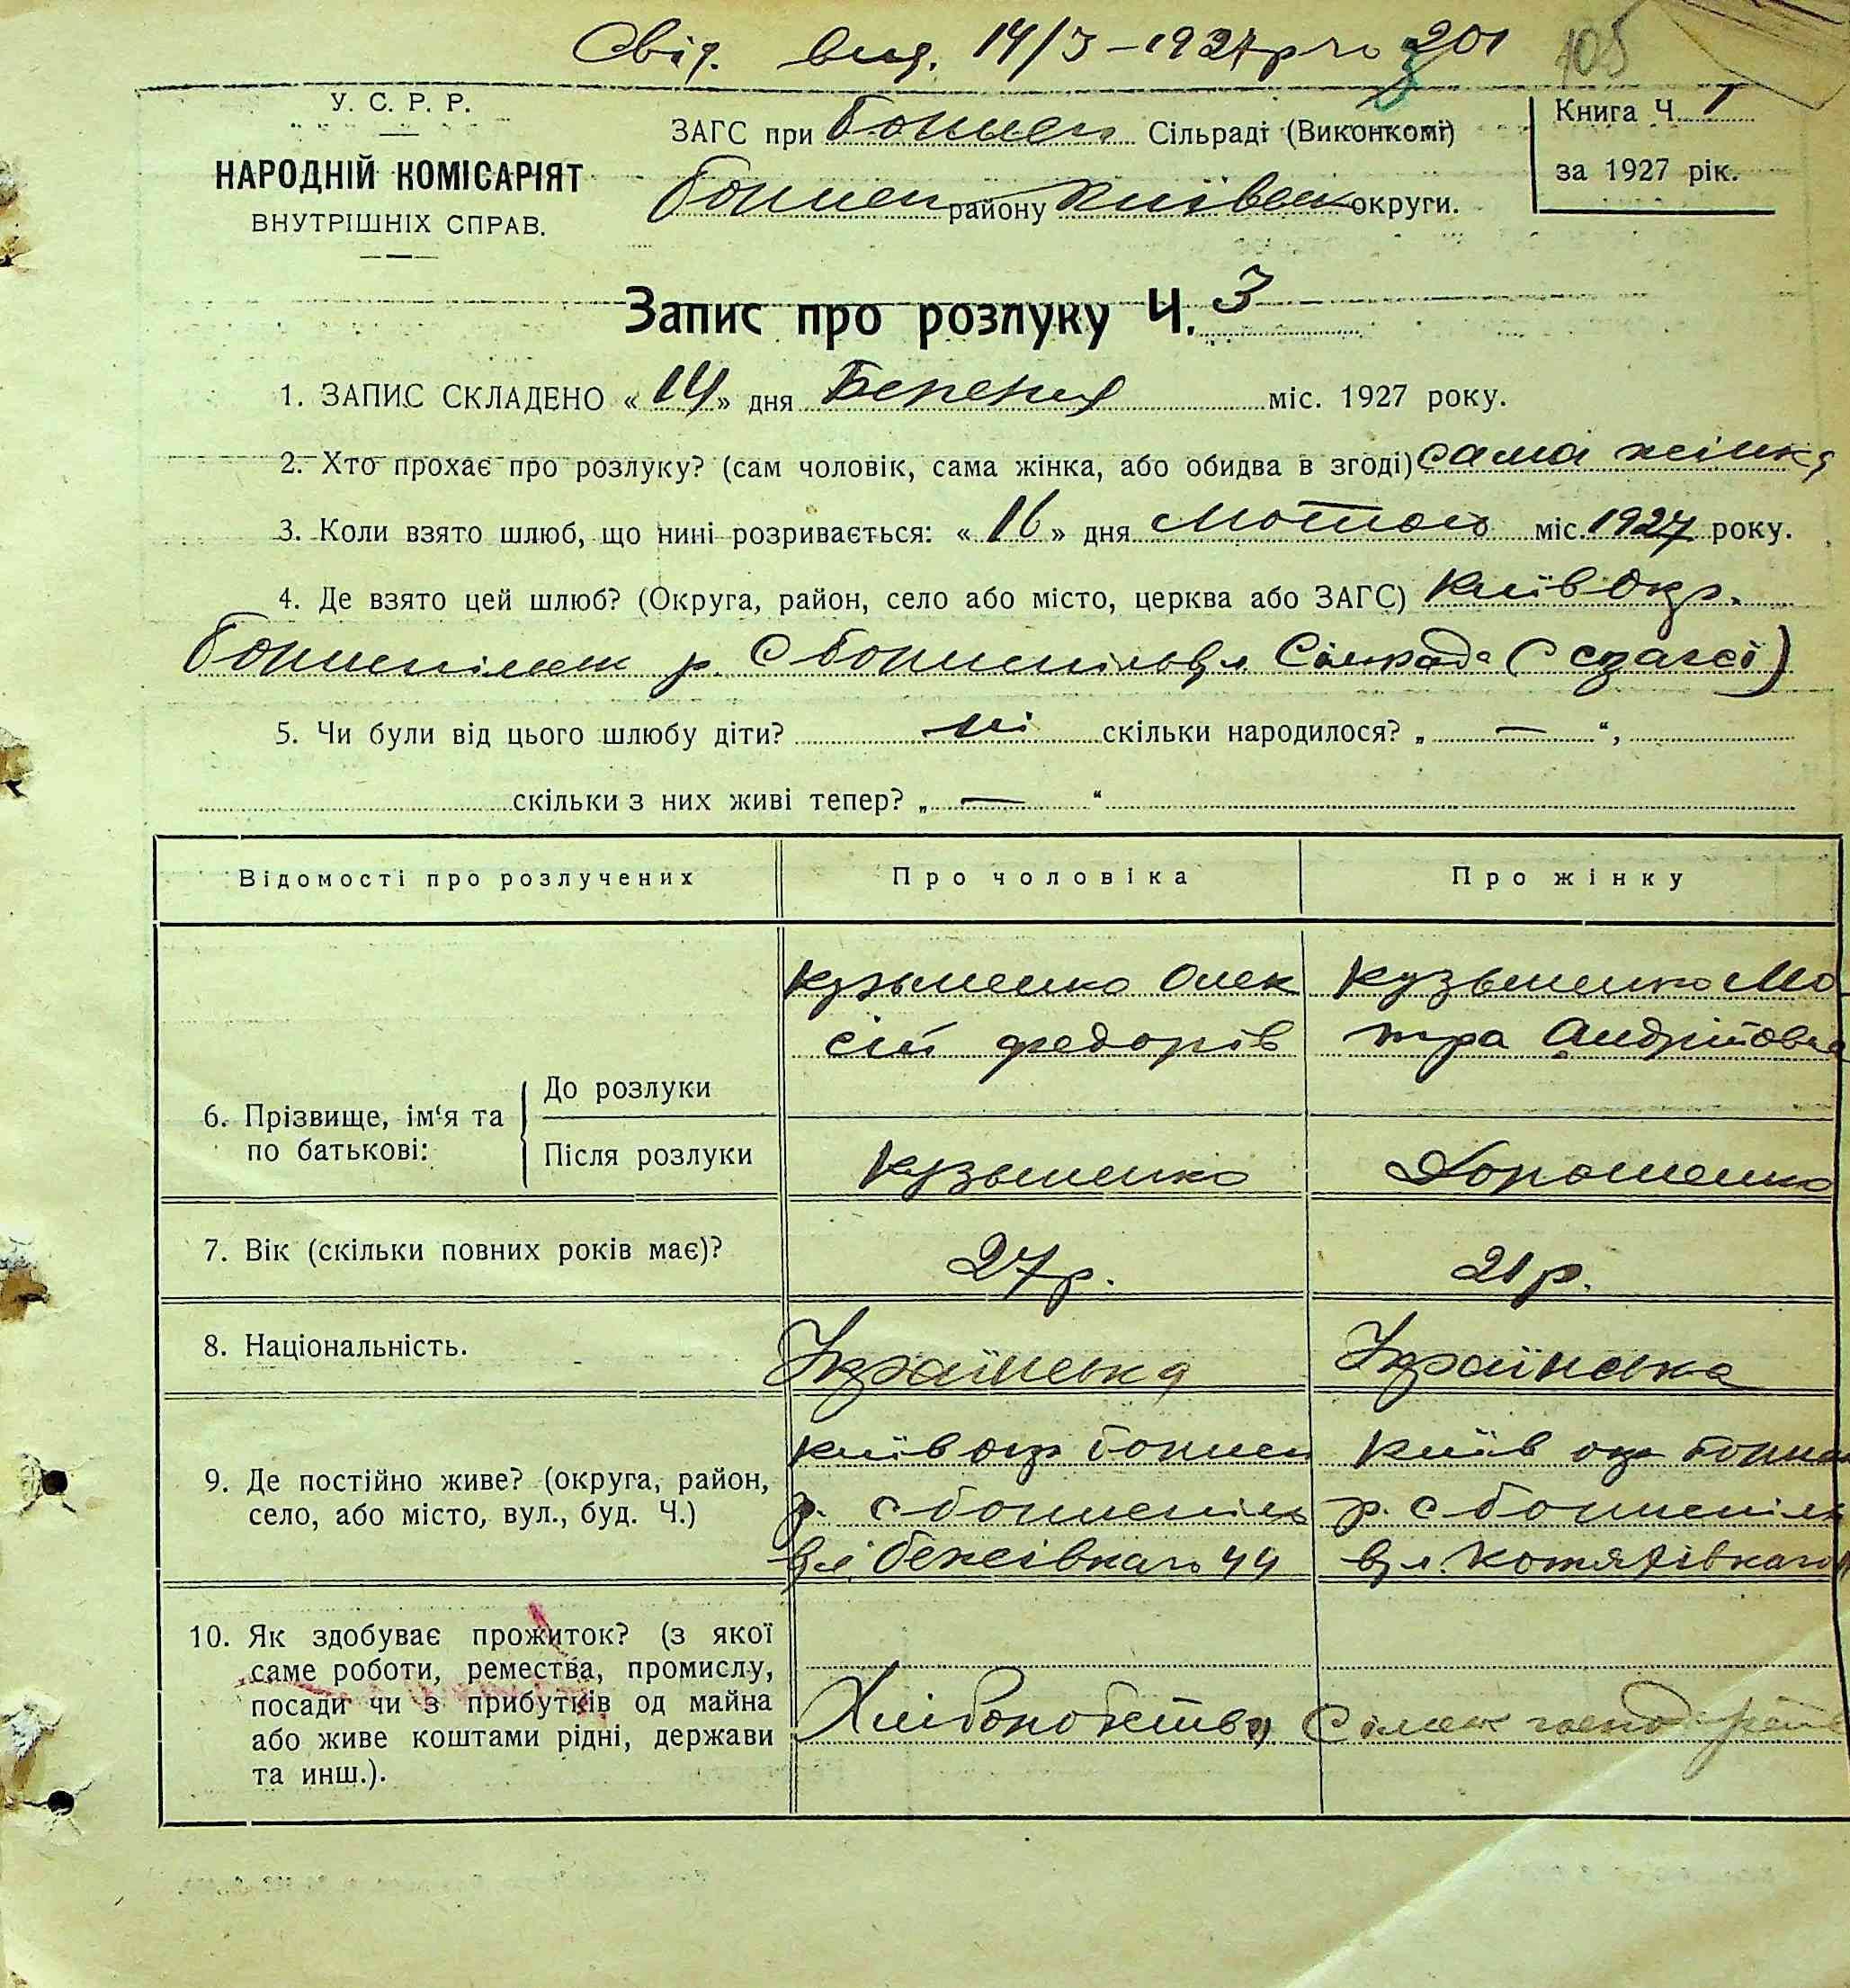 Свід. вид. 14/3-1927р № 201
105
У. С. Р. Р.
НАРОДНІЙ КОМІСАРІЯТ
ВНУТРІШНІХ СПРАВ.
ЗАГС при Борисп Сільраді (Виконкомі)
Борисп району Київськ округи.
Книга Ч. 1
за 1927 рік.
Запис про розлуку Ч. 3
1. ЗАПИС СКЛАДЕНО «14» дня Березня міс. 1927 року.
2. Хто прохає про розлуку? (сам чоловік, сама жінка, або обидва в згоді) сама жінка
3. Коли взято шлюб, що нині розривається: «16» дня Лютого міс. 1927 року.
4. Де взято цей шлюб? (Округа, район, село або місто, церква або ЗАГС) Київ Окр.
Бориспільск р. С Бориспіль Сільрада
5. Чи були від цього шлюбу діти? ні скільки народилося? „ — “,
скільки з них живі тепер? „ — “
Відомості про розлучених
Про чоловіка
Про жінку
6. Прізвище, ім‘я та по батькові:
До розлуки
Кузьменко Олек
сій Федорів
Кузьменко Мо
тра Андріївна
Після розлуки
Кузьменко
Дорошенко
7. Вік (скільки повних років має)?
27р.
21р.
8. Національність.
Українська
Українська
9. Де постійно живе? (округа, район,
село, або місто, вул., буд. Ч.)
Київ окр Борисп
р. с Бориспіль
вул. № 44
Київ окр Борисп
р. с Бориспіль
вул.
10. Як здобуває прожиток? (з якої
саме роботи, ремества, промислу,
посади чи з прибутків од майна
або живе коштами рідні, держави
та инш.).
Хліборобство
Сільськ господарств